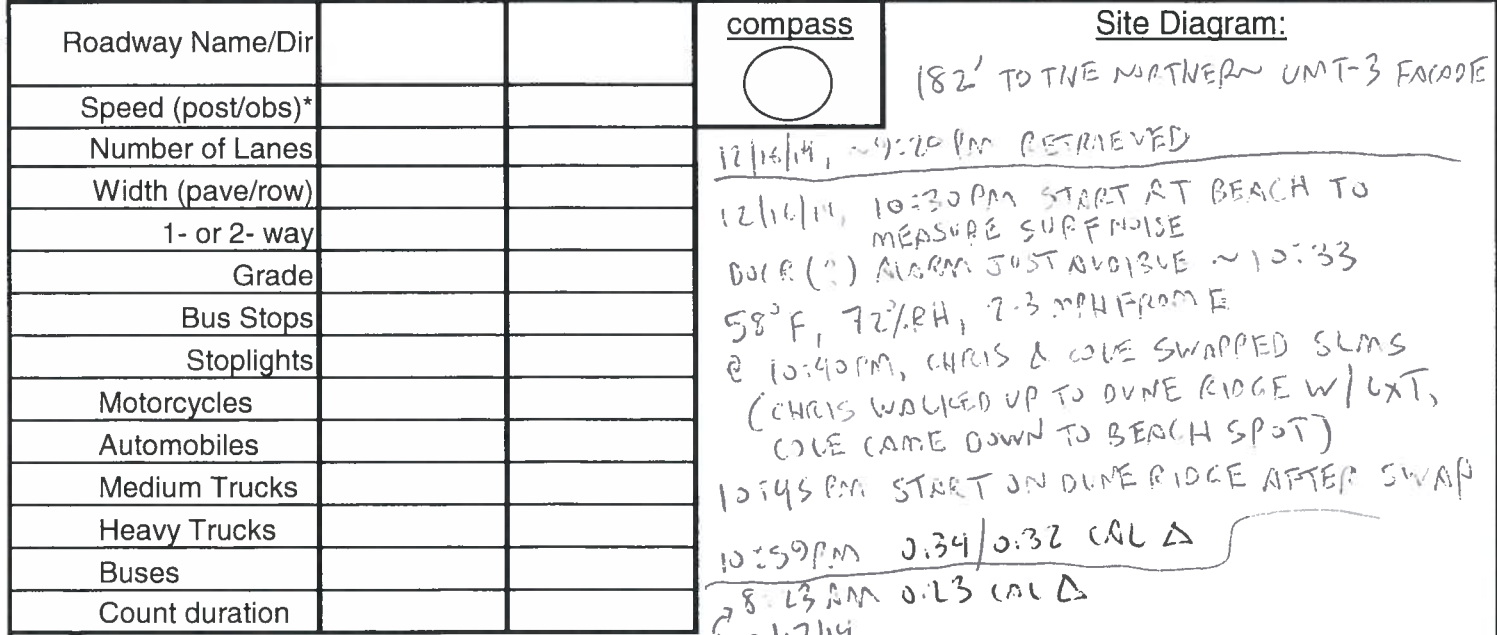 Roadway Name/Dir
Speed (post/obs)*
Number of Lanes
Width (pave/row)
1- or 2- way
Grade
Bus Stops
Stoplights
Motorcycles
Automobiles
Medium Trucks
Heavy Trucks
Buses
Count duration
compass
Site Diagram:
182' TO THE NORTHERN UNIT-3 FACADE
12/16/14, ~9:20 PM RETRIEVED
12/16/14, 10:30 PM START AT BEACH TO
MEASURE SURF NOISE
DOOR (?) ALARM JUST AUDIBLE ~10:33
58°F, 72%RH, 2-3 MPH FROM E
@ 10:40PM, CHRIS & COLE SWAPPED SLMS
(CHRIS WALKED UP TO DUNE RIDGE W/ LXT,
COLE CAME DOWN TO BEACH SPOT)
10:45 PM START ON DUNE RIDGE AFTER SWAP
10:59PM 0.34/0.32 CAL Δ
8:23 AM 0.23 CAL Δ